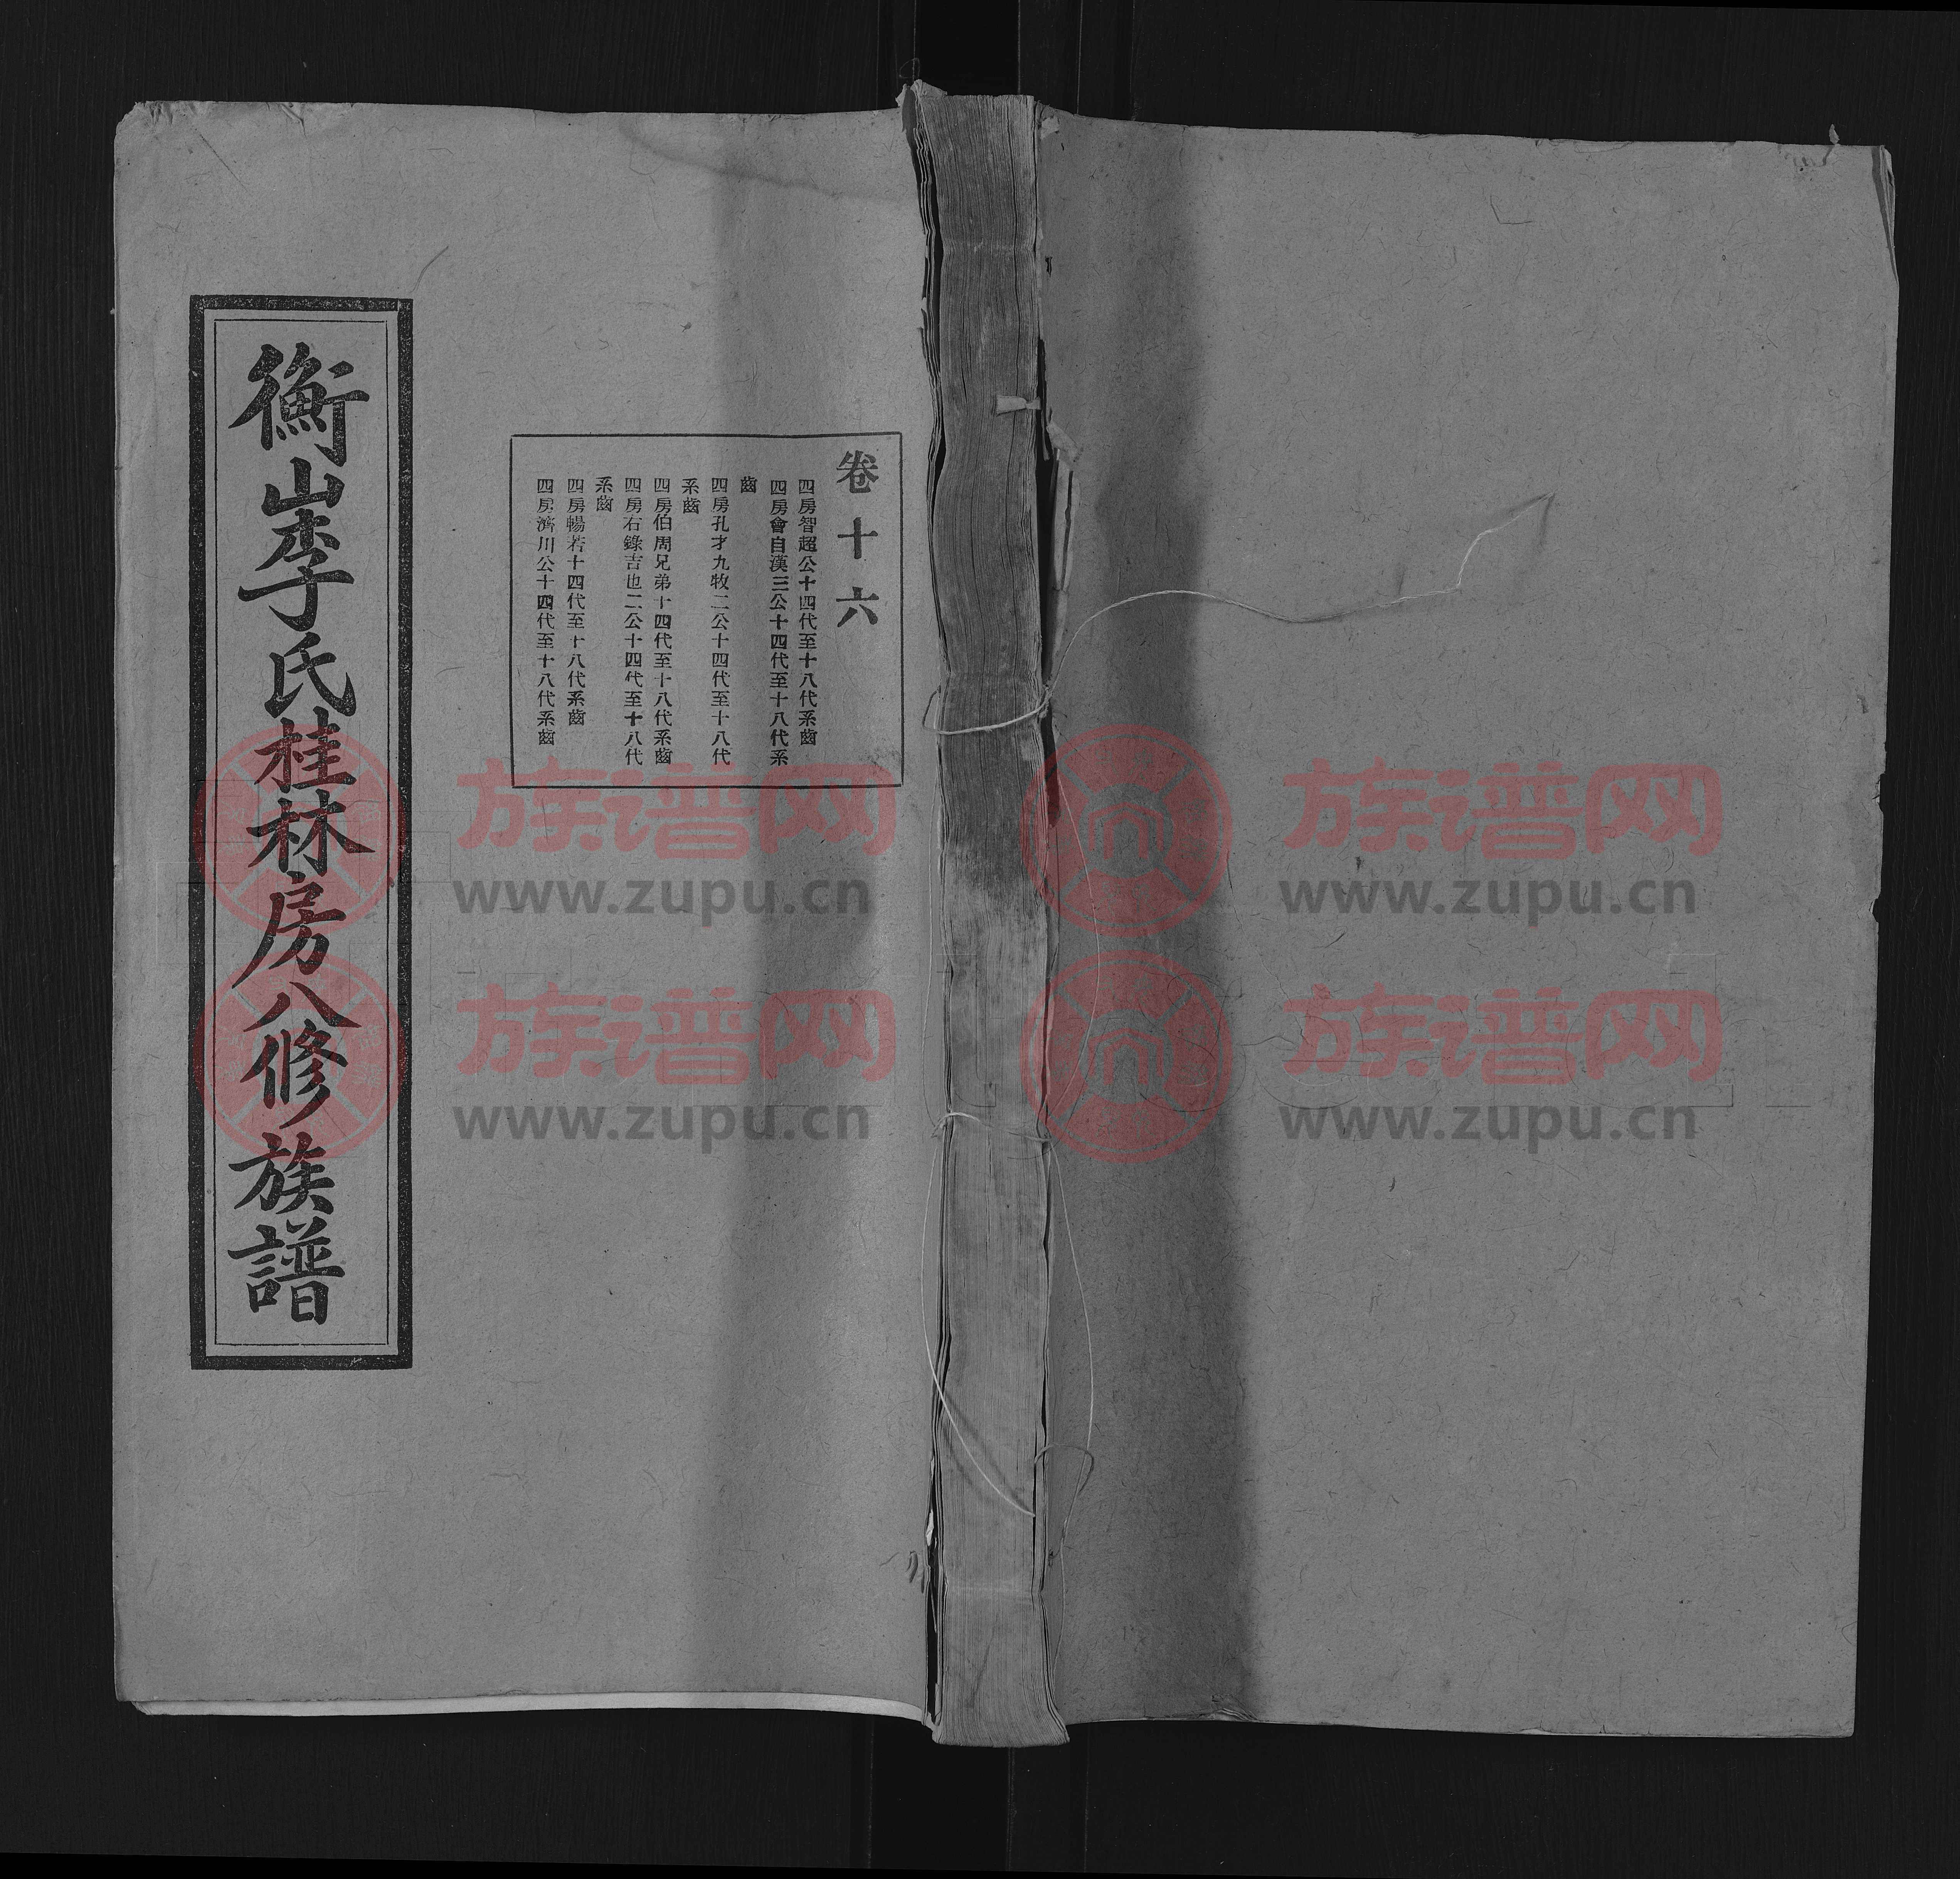 卷十六
四房智超公十四代至十八代系齒
四房會自漢三公十四代至十八代系
齒
四房孔才九牧二公十四代至十八代
系齒
四房伯周兄弟十四代至十八代系齒
四房右錄吉也二公十四代至十八代
系齒
四房暢若十四代至十八代系齒
四房濟川公十四代至十八代系齒
衡山李氏桂林房八修族譜
族谱网
www.zupu.cn
族谱网
www.zupu.cn
族谱网
www.zupu.cn
族谱网
www.zupu.cn